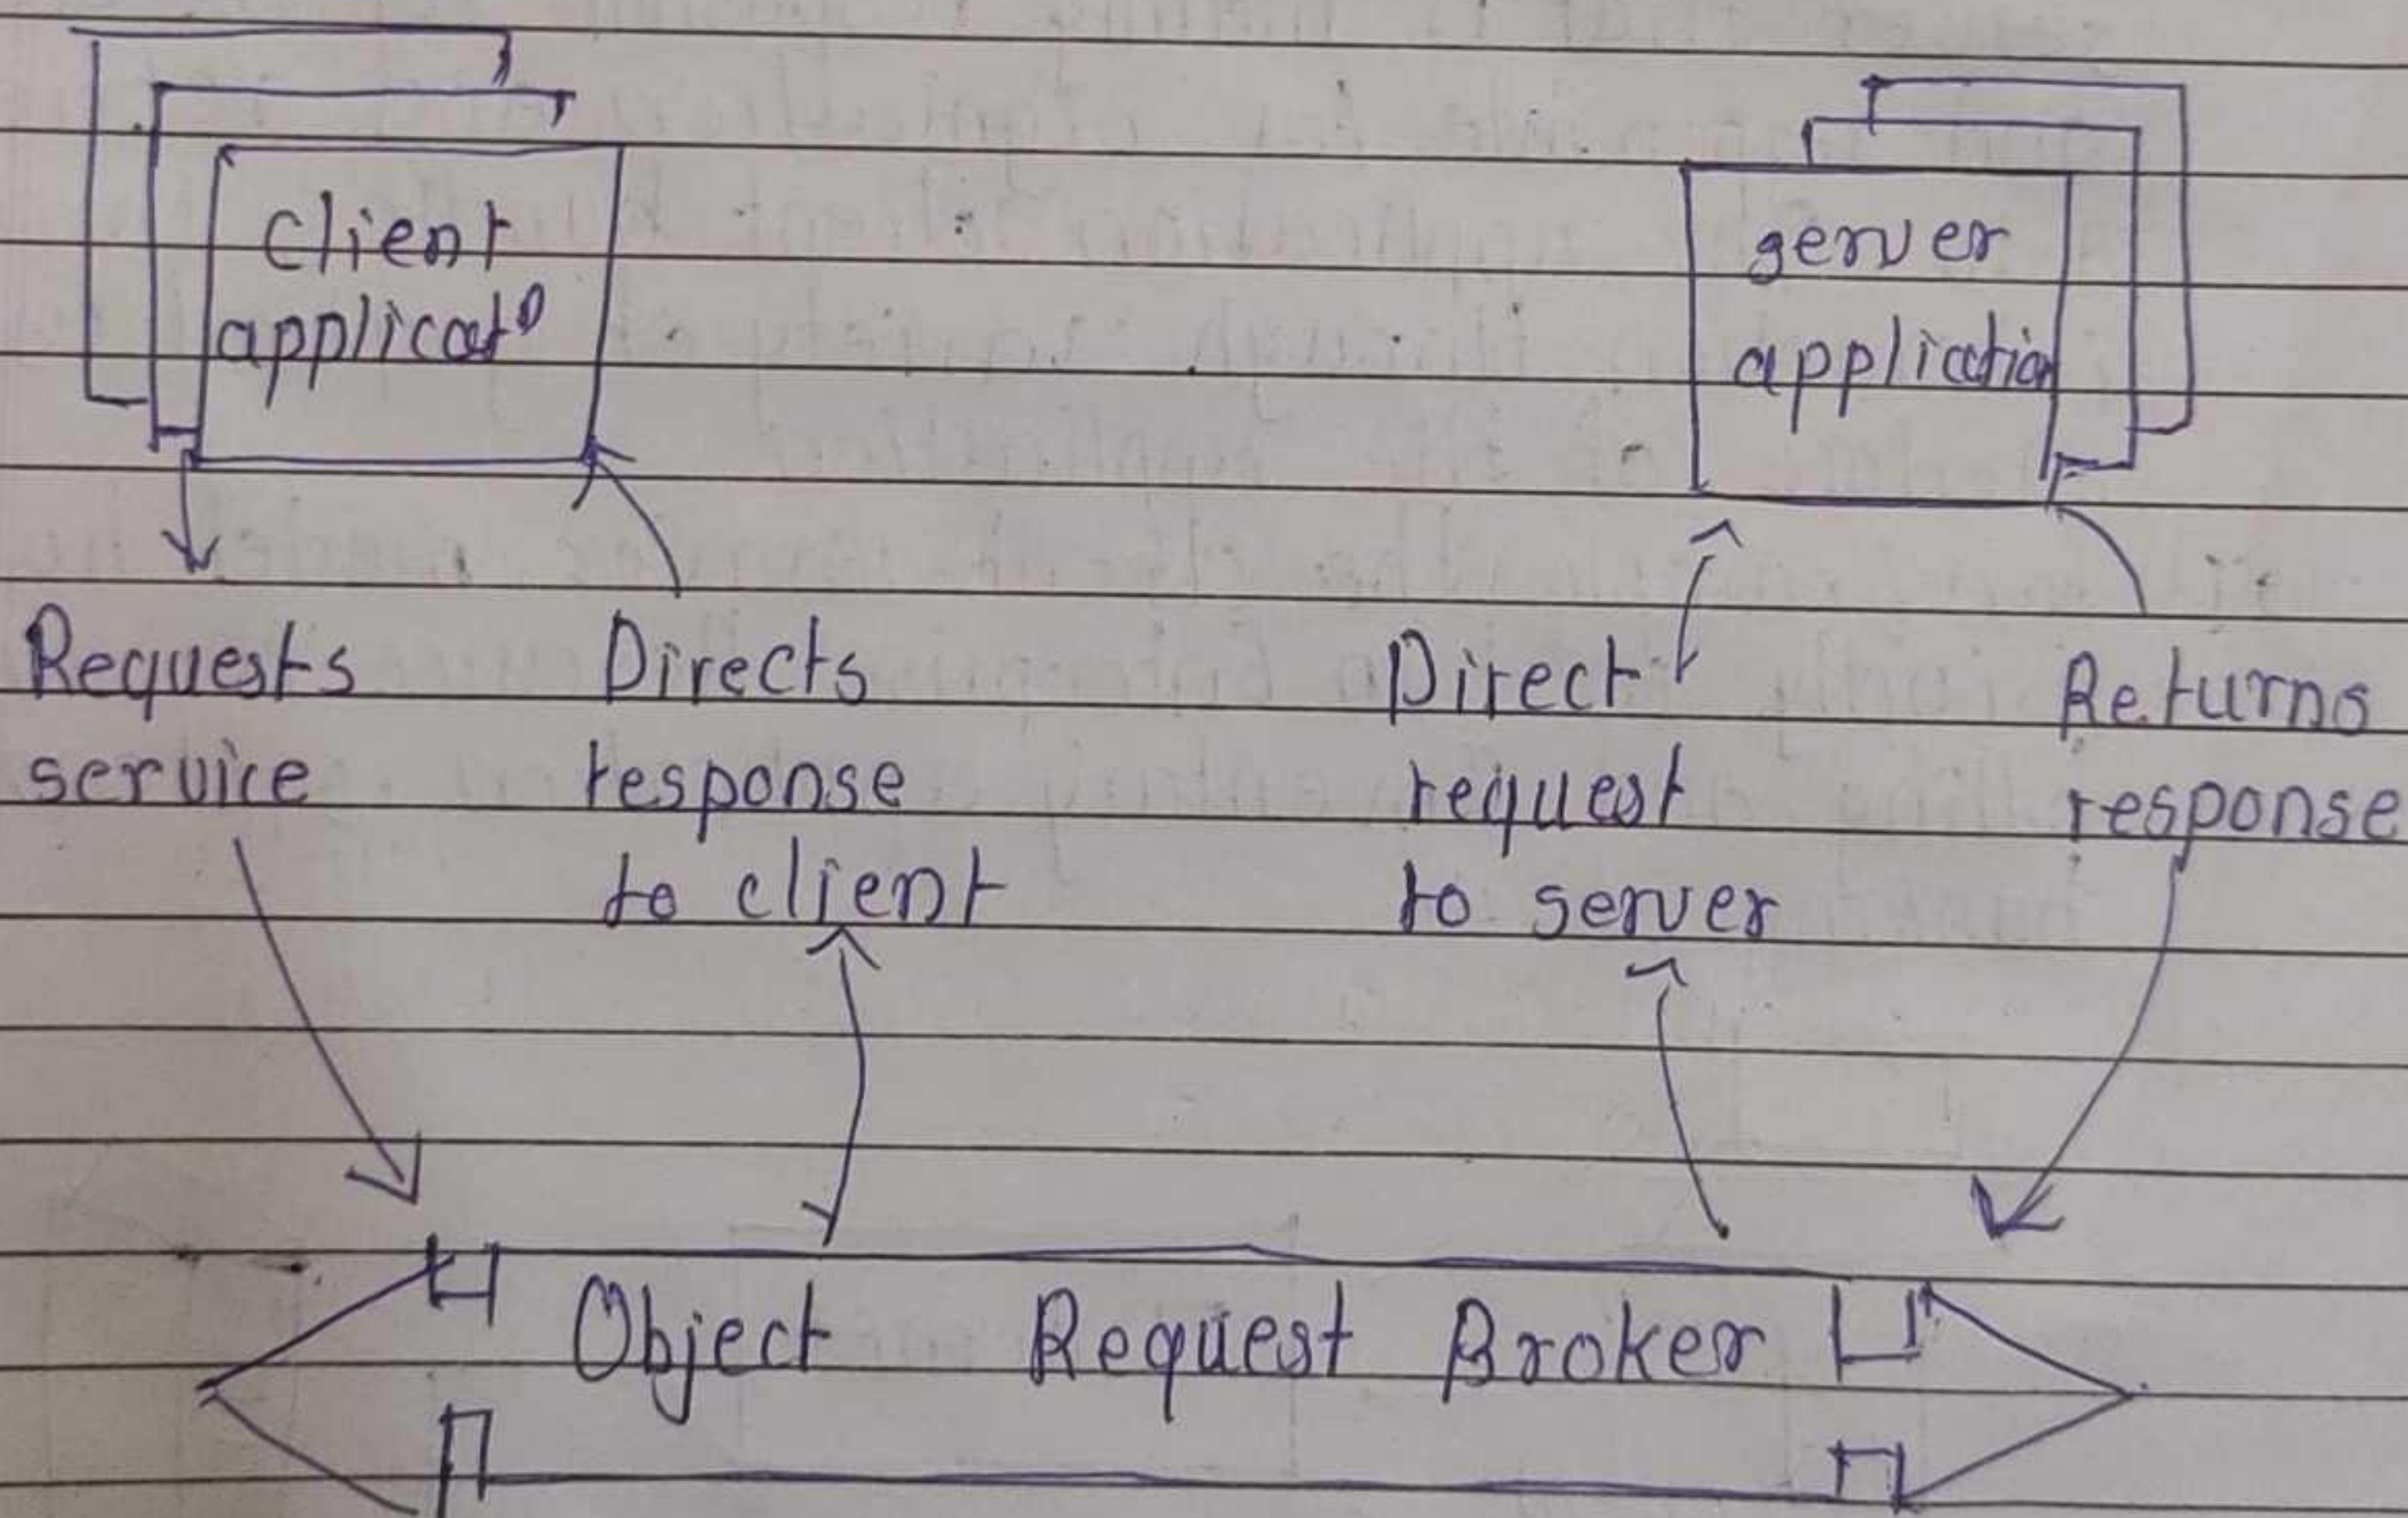 client
applicatⁿ
server
application
Requests
service
Directs
response
to client
Direct
request
to server
Returns
response
Object Request Broker